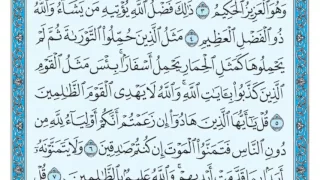 وَهُوَ ٱلْعَزِيزُ ٱلْحَكِيمُ ٣ ذَٰلِكَ فَضْلُ ٱللَّهِ يُؤْتِيهِ مَن يَشَآءُ وَٱللَّهُ
ذُو ٱلْفَضْلِ ٱلْعَظِيمِ ٤ مَثَلُ ٱلَّذِينَ حُمِّلُوا۟ ٱلتَّوْرَىٰةَ ثُمَّ لَمْ
يَحْمِلُوهَا كَمَثَلِ ٱلْحِمَارِ يَحْمِلُ أَسْفَارًۢا بِئْسَ مَثَلُ ٱلْقَوْمِ
ٱلَّذِينَ كَذَّبُوا۟ بِـَٔايَٰتِ ٱللَّهِ وَٱللَّهُ لَا يَهْدِى ٱلْقَوْمَ ٱلظَّٰلِمِينَ
٥ قُلْ يَٰٓأَيُّهَا ٱلَّذِينَ هَادُوٓا۟ إِن زَعَمْتُمْ أَنَّكُمْ أَوْلِيَآءُ لِلَّهِ مِن
دُونِ ٱلنَّاسِ فَتَمَنَّوُا۟ ٱلْمَوْتَ إِن كُنتُمْ صَٰدِقِينَ ٦ وَلَا يَتَمَنَّوْنَهُۥٓ
أَبَدًۢا بِمَا قَدَّمَتْ أَيْدِيهِمْ وَٱللَّهُ عَلِيمٌۢ بِٱلظَّٰلِمِينَ ٧ قُلْ